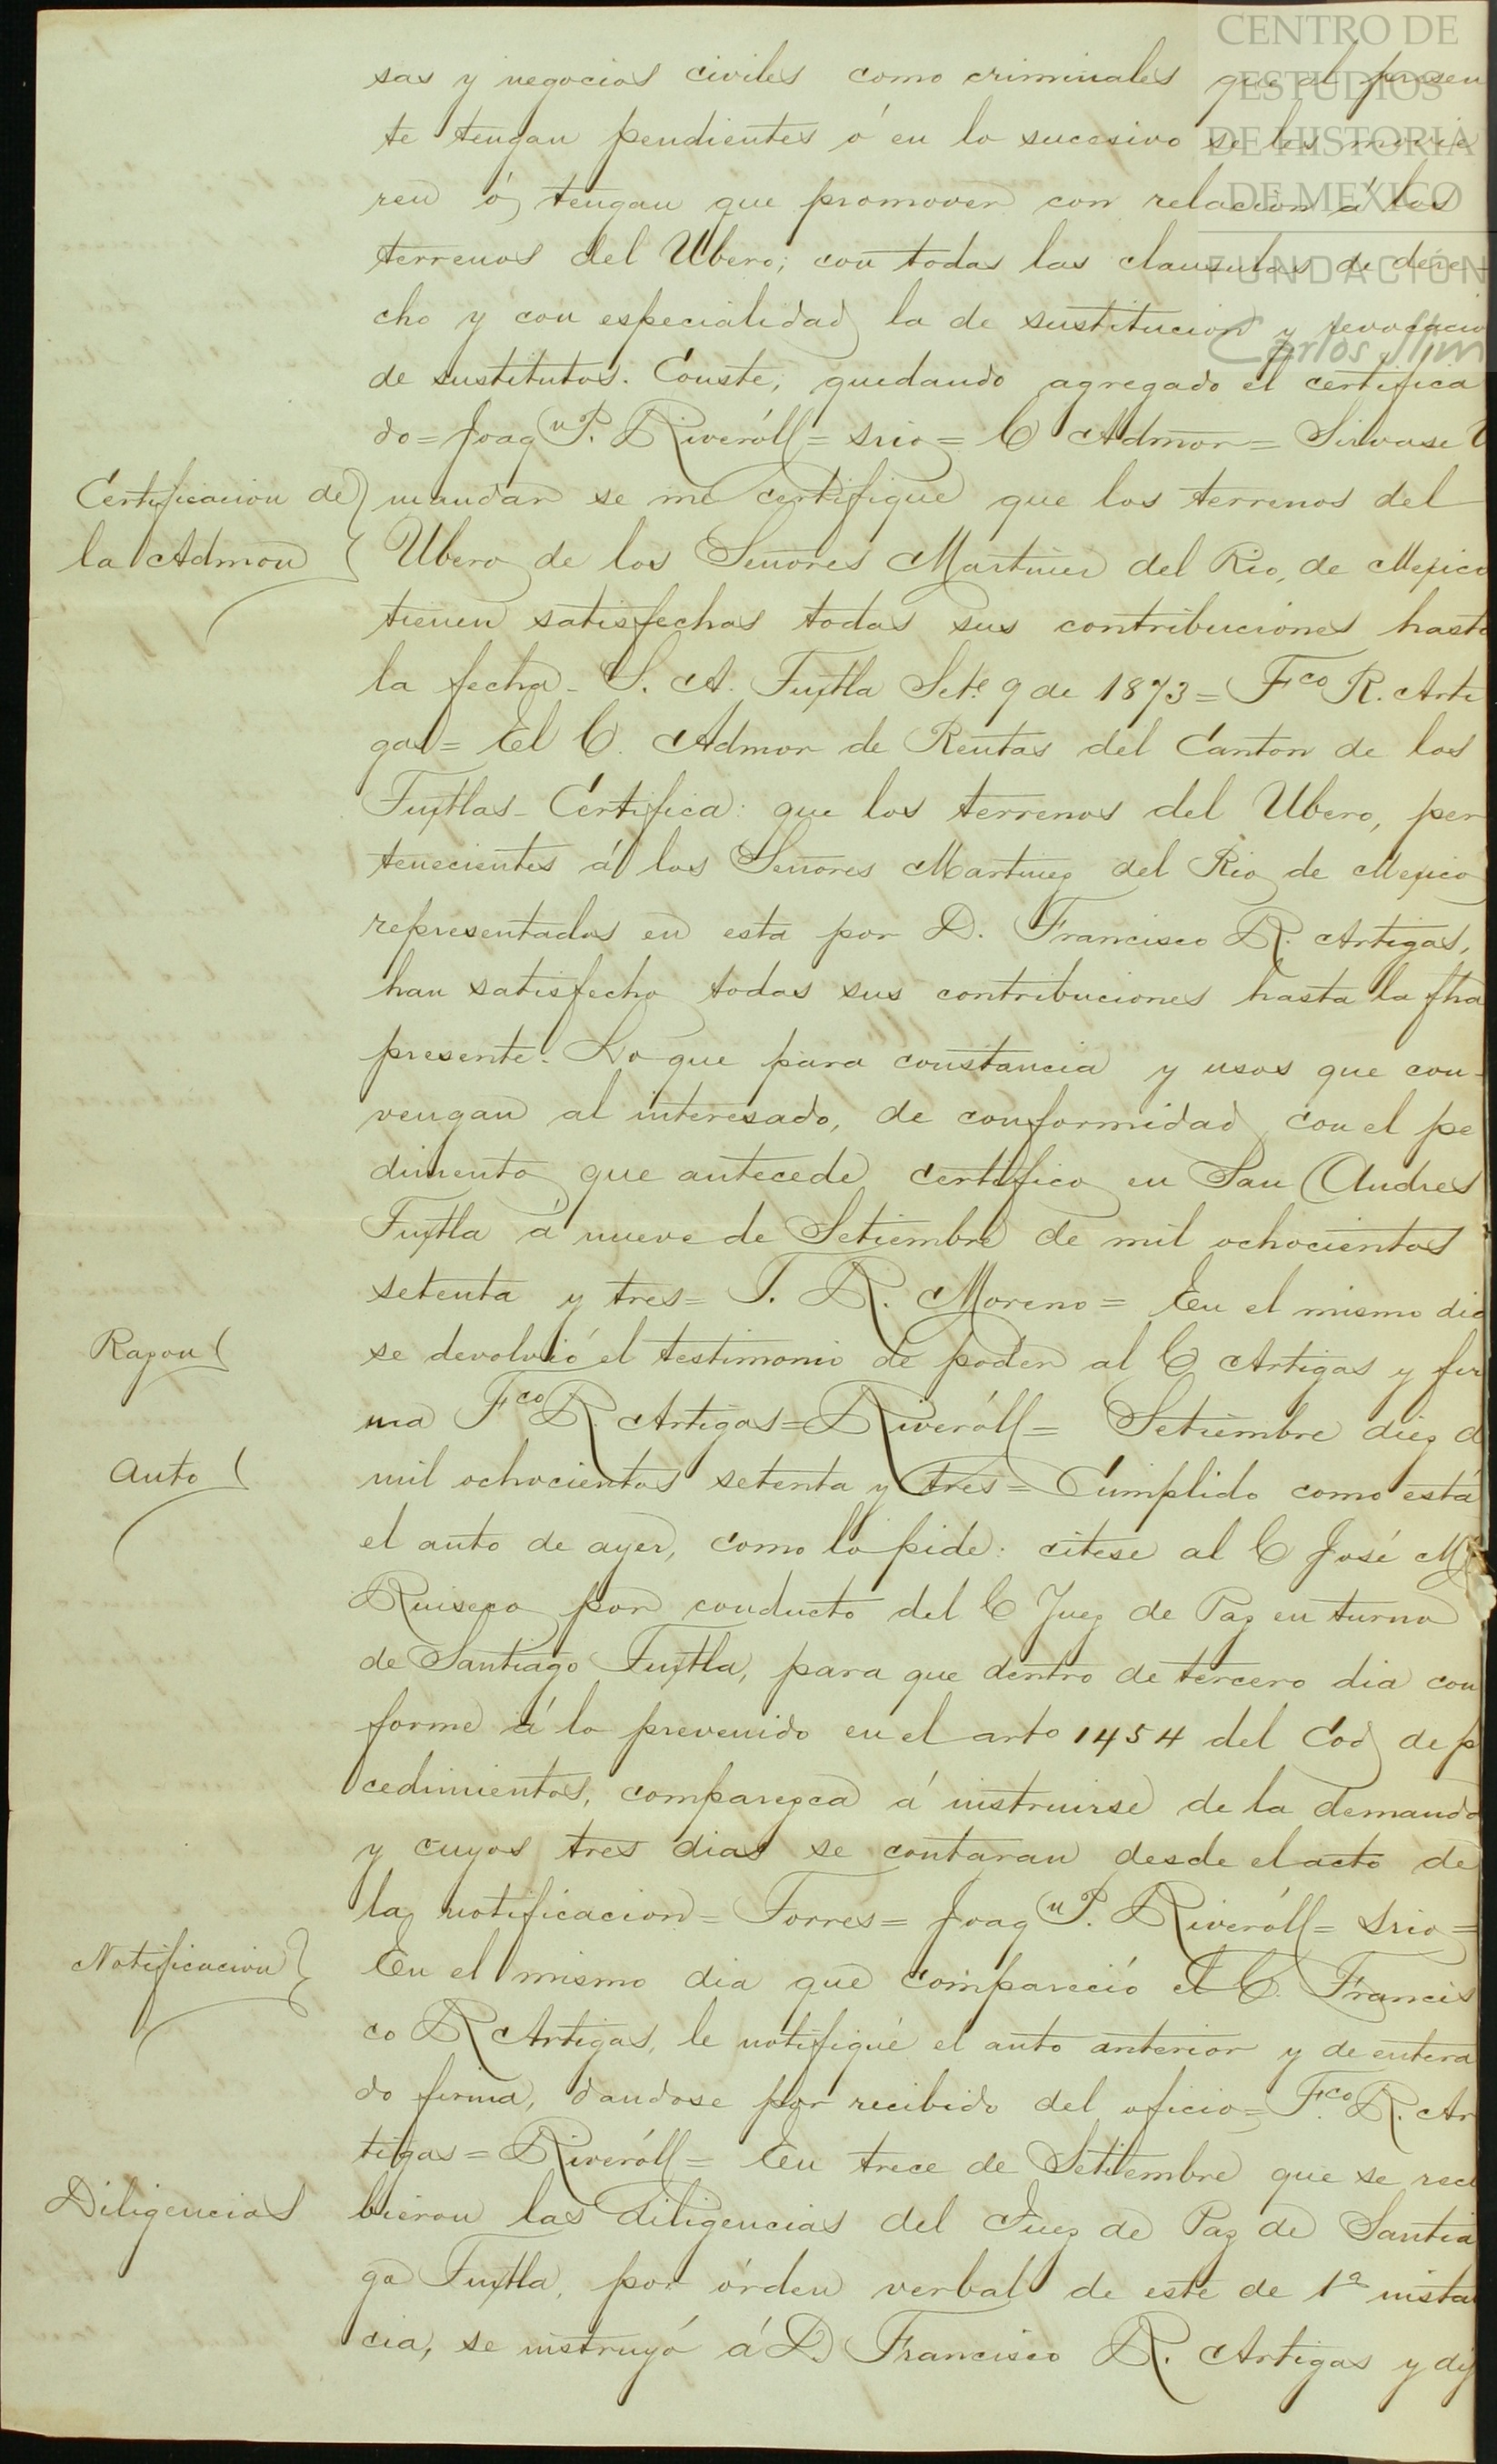 CENTRO DE
ESTUDIOS
DE HISTORIA
DE MEXICO
FUNDACIÓN
Carlos Slim
sas y negocios civiles como criminales que al presen
te tengan pendientes ó en lo sucesivo se les movie
ren ó tengan que promover con relacion á los
terrenos del Ubero; con todas las clausulas de dere-
cho y con especialidad la de sustitucion y revocacio
de sustitutos. Conste; quedando agregado el certifica
do = Joaqn P. Riveróll = srio = C Admor = Sirvase U
Certificacion de
la Admon
mandar se me certifique que los terrenos del
Ubero de los Señores Martinez del Rio, de Mejico
tienen satisfechas todas sus contribuciones hasta
la fecha - S. A. Tuxtla Sete 9 de 1873 = Fco R. Arti
gas = El C. Admor de Rentas del Canton de los
Tuxtlas - Certifica: que los terrenos del Ubero, per
tenecientes á los Señores Martinez del Rio de Mejico
representados en esta por D. Francisco R. Artigas,
han satisfecho todas sus contribuciones hasta la fha
presente. Lo que para constancia y usos que con-
vengan al interesado, de conformidad con el pe
dimento que antecede certifico en San Andres
Tuxtla á nueve de Setiembre de mil ochocientos
setenta y tres = T. R. Moreno = En el mismo dia
Razon
se devolvió el testimonio de poder al C Artigas y fir
ma Fco R Artigas = Riveróll = Setiembre diez d
Auto
mil ochocientos setenta y tres = Cumplido como está
el auto de ayer, como lo pide: citese al C José M
Ruiseco por conducto del C Juez de Paz en turno
de Santiago Tuxtla, para que dentro de tercero dia con
forme á lo prevenido en el arto 1454 del Cod de p
cedimientos, comparezca á instruirse de la demanda
y cuyos tres dias se contaran desde el acto de
la notificacion = Torres = Joaqn P. Riveróll = srio =
Notificacion
En el mismo dia que compareció el C. Francis
co R Artigas, le notifiqué el auto anterior y de entera
do firma, dandose por recibido del oficio = Fco R. Ar
tigas = Riveróll = En trece de Setiembre que se reci
Diligencias
bieron las diligencias del Juez de Paz de Santia
go Tuxtla, por órden verbal de este de 1a instan
cia, se instruyó á D. Francisco R. Artigas y dij